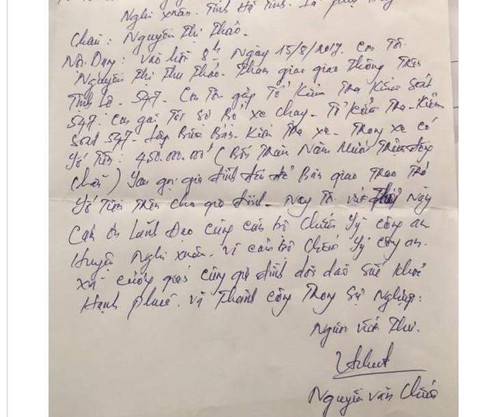 Nghi Xuân. Tỉnh Hà Tĩnh. Là phụ
Cháu: Nguyễn Thị Thảo.
Nội Dung: Vào hồi 8h Ngày 15/8/2017. Con Tôi
Nguyễn Thị Thu Thảo. Tham gia giao thông Trên
Tỉnh Lộ. 547. Con Tôi gặp Tổ Kiểm Tra Kiểm Soát
547. Con gái Tôi sợ Bỏ xe chạy. Tổ Kiểm Tra - Kiểm
Soát 547. Lập Biên Bản. Kiểm Tra xe. Trong xe có
số Tiền: 450.000.000đ (Bốn Trăm Năm Mươi Triệu
chẵn) gọi gia đình đến để Bàn giao Trao Trả
số Tiền Trên cho gia đình. Nay Tôi viết Thư Này
Cảm ơn Lãnh Đạo cùng cán bộ Chiến sỹ công an
Huyện Nghi Xuân. cán bộ Chiến sỹ công an.
cùng gia đình dồi dào sức khỏe
Hạnh phúc. và Thành công Trong Sự Nghiệp.
Người viết Thư.
Nguyễn Văn